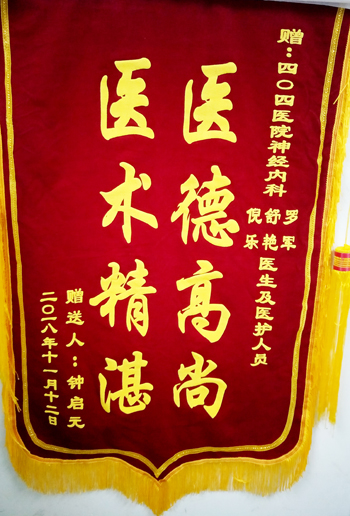 赠：四〇四医院神经内科
罗军
舒艳
倪乐
医生及医护人员
医德高尚
医术精湛
赠送人：钟启元
二〇一八年十一月十二日